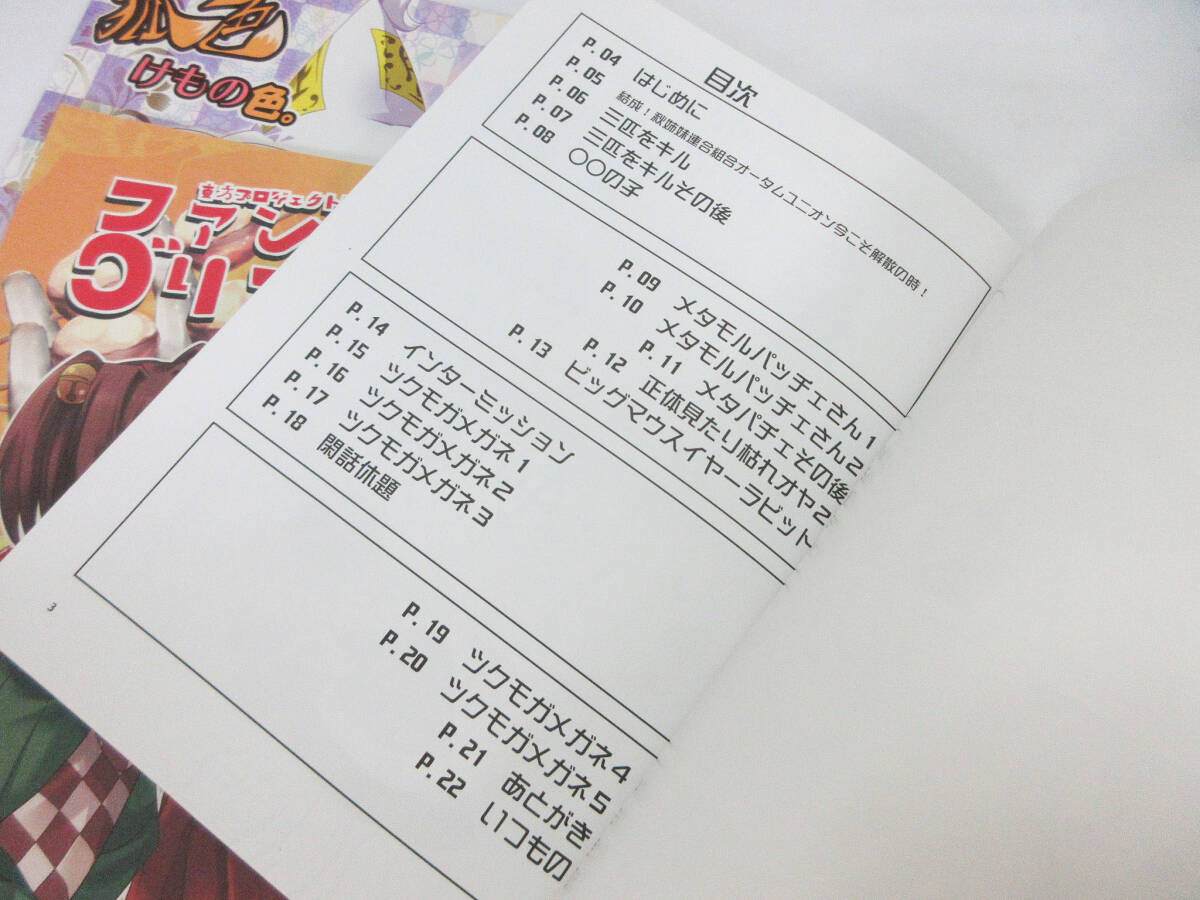 狐色
けもの色。
東方プロジェクト
ファン
グリ
目次
P.04 はじめに
P.05 結成!秋姉妹連合組合オータムユニオン今こそ解散の時!
P.06 三匹をキル
P.07 三匹をキルその後
P.08 〇〇の子
P.09 メタモルパッチェさん1
P.10 メタモルパッチェさん2
P.11 メタパチェその後
P.12 正体見たり枯れオヤ2
P.13 ビッグマウスイヤーラビット
P.14 インターミッション
P.15 ツクモガメガネ1
P.16 ツクモガメガネ2
P.17 ツクモガメガネ3
P.18 閑話休題
P.19 ツクモガメガネ4
P.20 ツクモガメガネ5
P.21 あとがき
P.22 いつもの
3